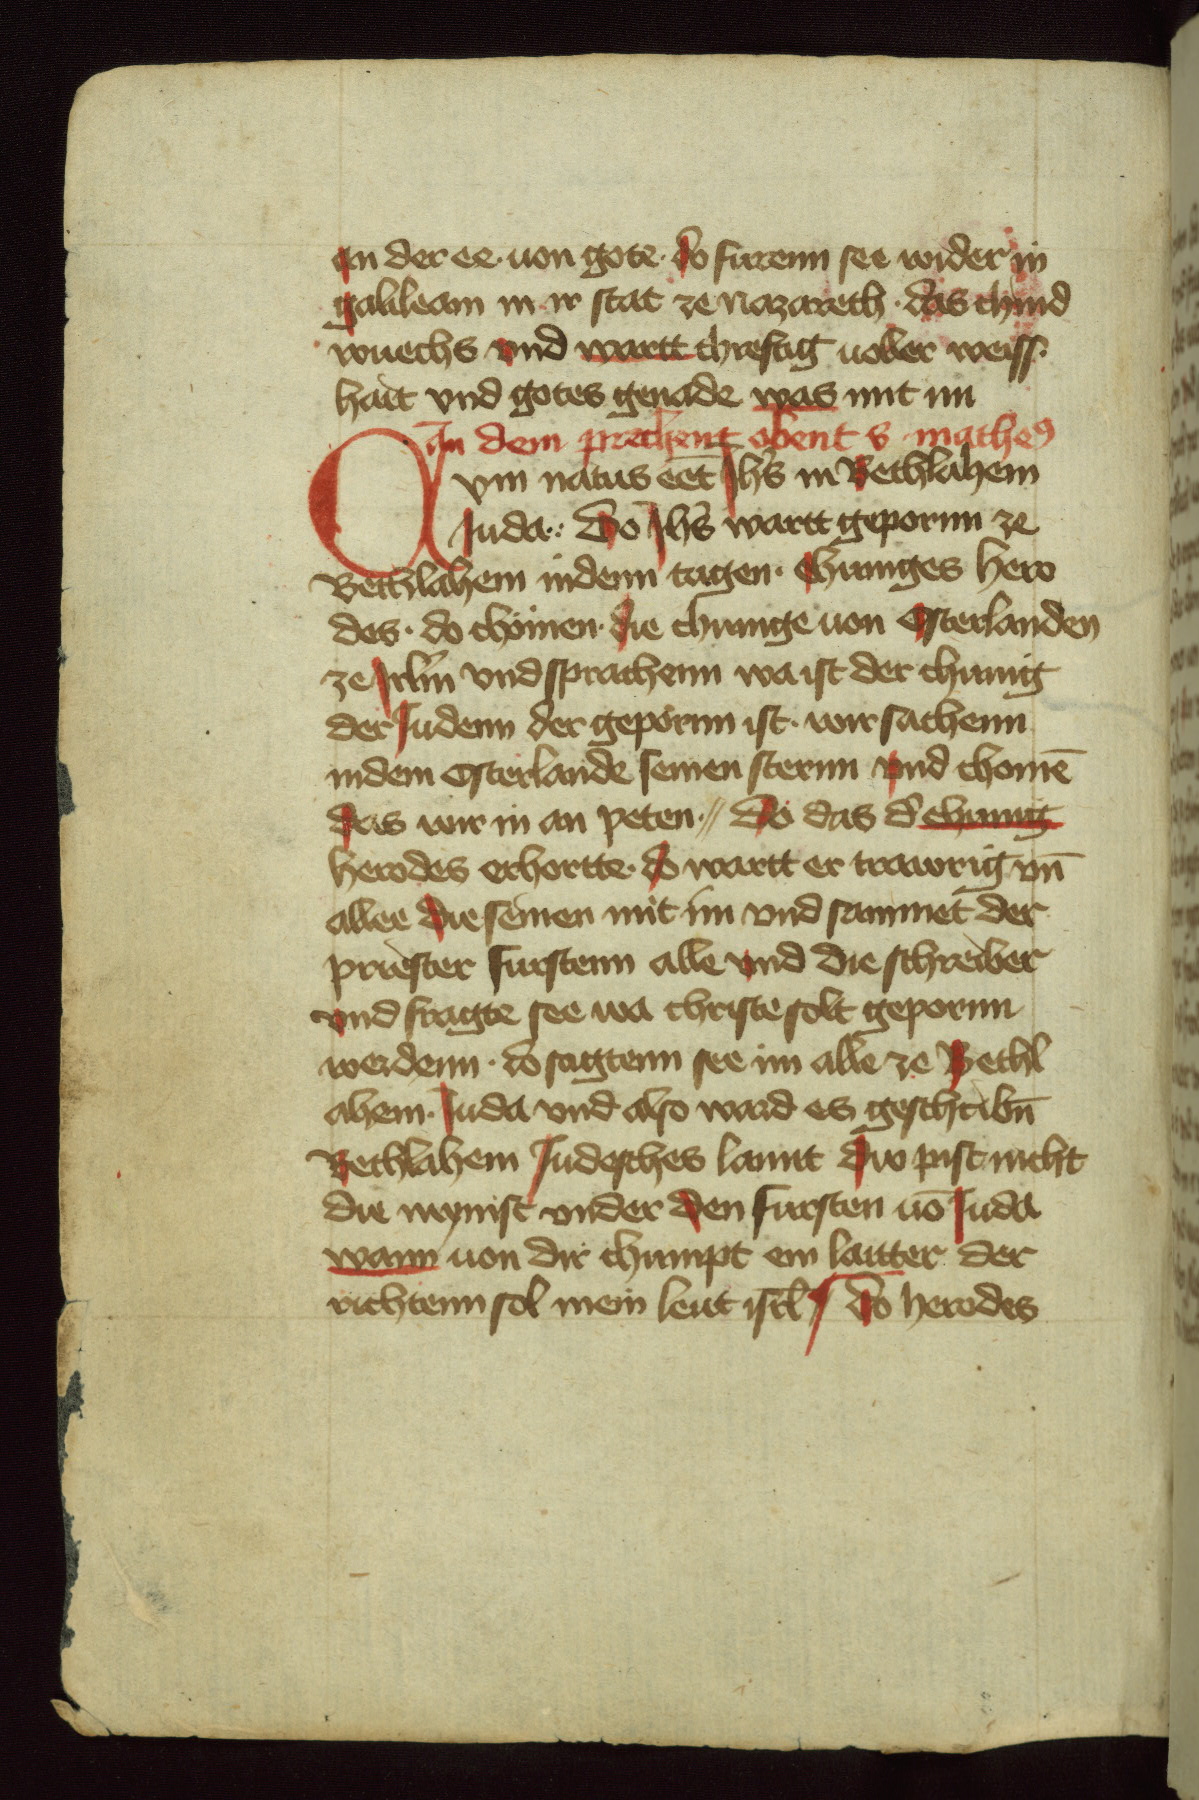 an der ee · von gote · do furenn see wider in
galileam in ir stat ze nazareth · das chind
wuechs vnd wartt chreftig voller weiss
hait vnd gotes genade was mit im
An dem prechent obent S matheꝰ
Cvm natus eēt Jhs̄ in Bethlahem
Juda · Do Jhs̄ wartt gepornn ze
Bethlahem indenn tagen · Chuniges hero
des · do chömen · die chunige von Osterlanden
ze Jrlm̄ vnd sprachenn wa ist der chunig
der Judenn der gepornn ist · wir sachenn
indem Osterlande seinen sternn vnd chomē
das wir in an peten ·// Do das d̄ chunig
herodes erhortte · do wartt er trawrig vn̄
allee die seinen mit im vnd sammet der
priester furstenn alle vnd die schreiber
vnd fragte see wa christe solt gepornn
werdenn · do sagtenn see im alle ze Bethl
ahem · Juda vnd also ward es geschribn̄
Bethlahem Judesches lannt dw pist nicht
die mynist vnder den fursten vō Juda
wann von dir chumpt ein laitter der
richtenn sol mein leut isrl̄ // Do herodes